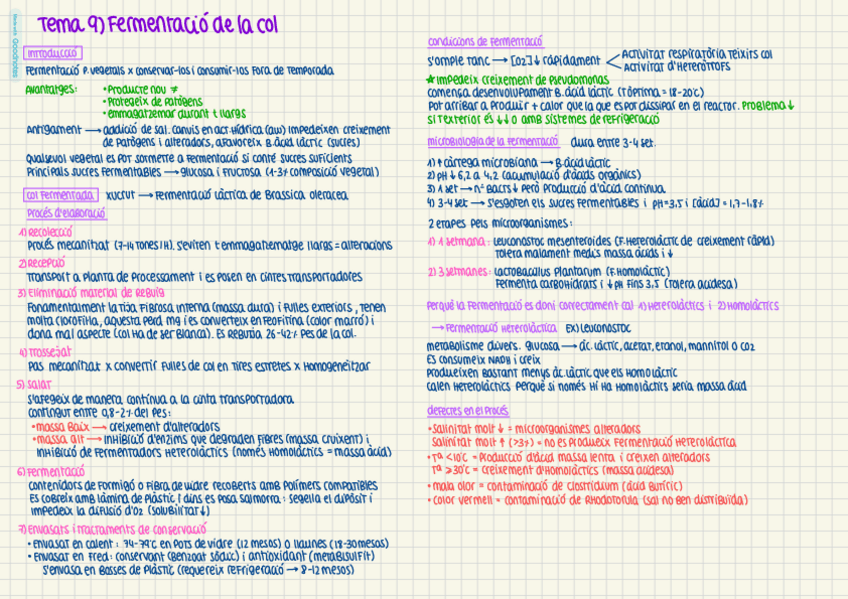 Tema 9) Fermentació de la col
Introducció
Fermentació p. vegetals x conservar-los i consumir-los fora de temporada
Avantatges: • Producte nou ≠
• Protegeix de patògens
• emmagatzemar durant t llargs
Antigament → addició de sal. Canvis en act. hídrica (aw) impedeixen creixement
de patògens i alteradors, afavoreix B. àcid làctic (sucres)
Qualsevol vegetal es pot sotmetre a fermentació si conté sucres suficients
Principals sucres fermentables → glucosa i fructosa (1-3% composició vegetal)
Col fermentada xucrut → Fermentació làctica de Brassica oleracea
Procés d'elaboració
1) Recolecció
Procés mecanitzat (7-14 tones/H). S'eviten t emmagatzematge llargs = alteracions
2) Recepció
Transport a planta de processament i es posen en cintes transportadores
3) Eliminació material de rebuig
Fonamentalment la tija fibrosa interna (massa dura) i fulles exteriors, tenen
molta clorofil·la, aquesta perd mg i es converteix en feofitina (color marró) i
dona mal aspecte (col ha de ser blanca). Es rebutja 26-42% pes de la col.
4) Trossejat
Pas mecanitzat x convertir fulles de col en tires estretes x Homogeneïtzar
5) Salat
S'afegeix de manera contínua a la cinta transportadora
Contingut entre 0,8-2% del pes:
• massa baix → creixement d'alteradors
• massa alt → inhibició d'enzims que degraden fibres (massa cruixent) i
inhibició de fermentadors Heterolàctics (només Homolàctics = massa àcid)
6) Fermentació
Contenidors de formigó o fibra de vidre recoberts amb polímers compatibles
Es cobreix amb làmina de plàstic i dins es posa salmorra: segella el dipòsit i
impedeix la difusió d'O2 (solubilitat↓)
7) Envasats i tractaments de conservació
• Envasat en calent: 74-79°C en pots de vidre (12 mesos) o llaunes (18-30 mesos)
• Envasat en fred: conservant (Benzoat sòdic) i antioxidant (metabisulfit)
S'envasa en bosses de plàstic (requereix refrigeració → 8-12 mesos)
Condicions de fermentació
S'omple tanc → [O2]↓ ràpidament
Activitat respiratòria teixits col
Activitat d'Heteròtrofs
★ Impedeix creixement de Pseudomonas
Comença desenvolupament B. àcid làctic (Tòptima = 18-20°C)
Pot arribar a produir + calor que la que es pot dissipar en el reactor. Problema↓
si T exterior és ↓↓ o amb sistemes de refrigeració
Microbiologia de la fermentació dura entre 3-4 set.
1) ↑ càrrega microbiana → B. àcid làctic
2) pH ↓ 6,2 a 4,2 (acumulació d'àcids orgànics)
3) 1 set → nº bacts ↓ però producció d'àcid continua
4) 3-4 set → s'esgoten els sucres fermentables i pH=3,5 i [àcid] = 1,7-1,8%
2 etapes pels microorganismes:
1) 1 setmana: Leuconostoc mesenteroides (F. Heterolàctic de creixement ràpid)
Tolera malament medis massa àcids i ↓
2) 3 setmanes: Lactobacillus plantarum (F. Homolàctic)
Fermenta carbohidrats i ↓ pH fins 3,5 (tolera acidesa)
Perquè la fermentació es doni correctament cal 1) Heterolàctics i 2) Homolàctics
→ Fermentació Heterolàctica Ex) Leuconostoc
Metabolisme divers. Glucosa → àc. làctic, acetat, etanol, mannitol o CO2
Es consumeix NADH i creix
Produeixen bastant menys àc. làctic que els Homolàctic
Calen Heterolàctics perquè si només hi ha Homolàctics seria massa àcid
Defectes en el procés
• Salinitat molt ↓ = microorganismes alteradors
Salinitat molt ↑ (>3%) = no es produeix fermentació Heterolàctica
• Tª <10°C = producció d'àcid massa lenta i creixen alteradors
Tª ≥30°C = creixement d'Homolàctics (massa acidesa)
• mala olor = contaminació de clostridium (àcid butíric)
• Color vermell = contaminació de Rhodotorula (sal no ben distribuïda)